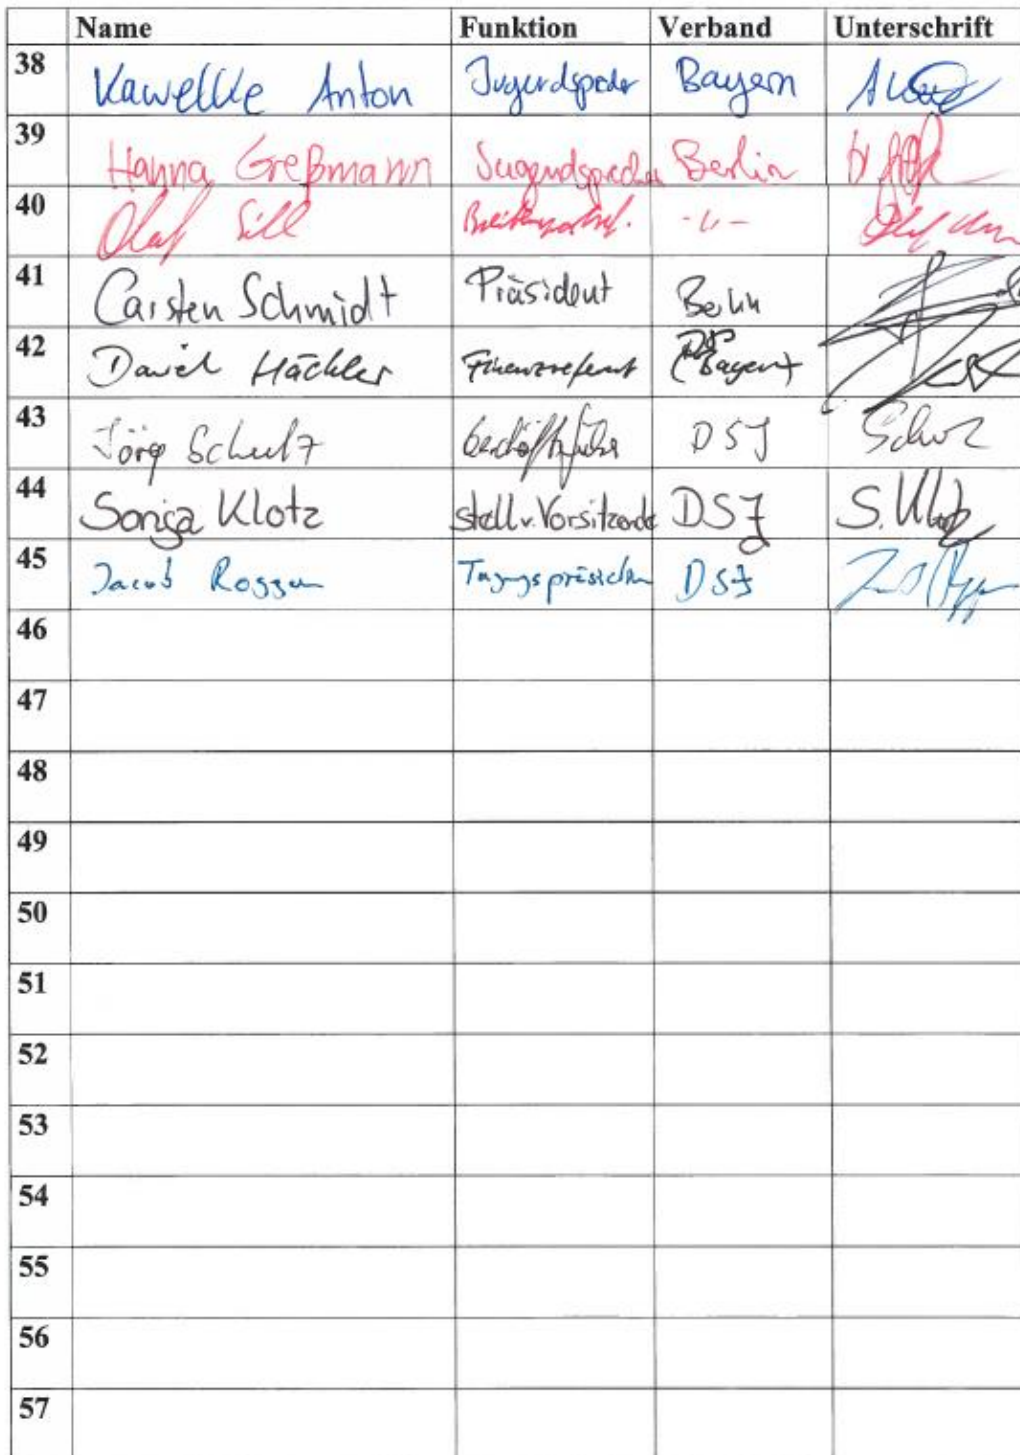 Name Funktion Verband Unterschrift
38 Kawellke Anton Jugendsprecher Bayern
39 Hanna Greßmann Jugendsprecher Berlin
40 Olaf Sill -"-
41 Carsten Schmidt Präsident Berlin
42 David Häckler Finanzreferent (Bayern)
43 Jörg Schulz Geschäftsführer DSJ Schulz
44 Sonja Klotz stellv. Vorsitzende DSJ S. Klotz
45 Jacob Roggon Tagungspräsident DSJ
46
47
48
49
50
51
52
53
54
55
56
57